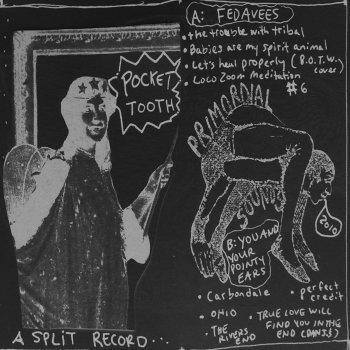 POCKET
TOOTH
A SPLIT RECORD...
A: FEDAVEES
• the trouble with tribal
• Babies are my spirit animal
• Let's heal properly (B.O.T.W. cover)
• Loco Zoom Meditation
#6
PRIMORDIAL
SOUNDS
2010
B: YOU AND
YOUR
POINTY
EARS
• Carbondale
• perfect
credit
• OHIO
• THE
RIVERS
END
• TRUE LOVE WILL
FIND YOU IN THE
END